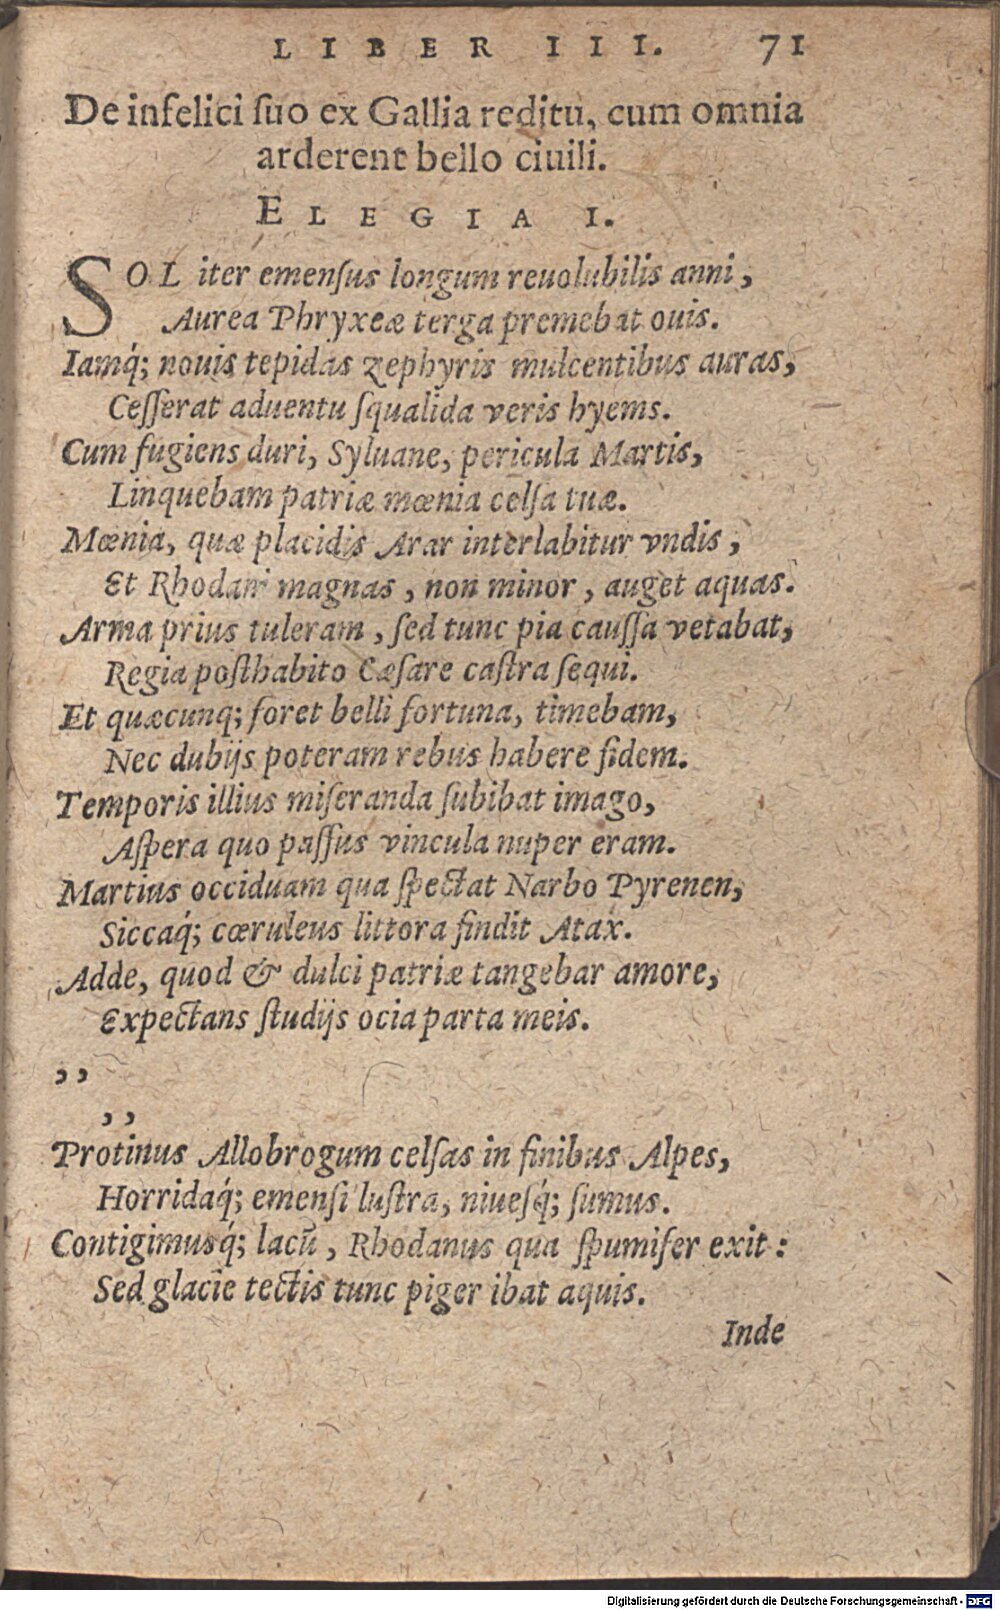 LIBER III. 71
De infelici ſuo ex Gallia reditu, cum omnia
arderent bello ciuili.
ELEGIA I.
SOL iter emenſus longum reuolubilis anni,
Aurea Phryxeæ terga premebat ouis.
Iamq́; nouis tepidas zephyris mulcentibus auras,
Ceſſerat aduentu ſqualida veris hyems.
Cum fugiens duri, Syluane, pericula Martis,
Linquebam patriæ mœnia celſa tuæ.
Mœnia, quæ placidis Arar interlabitur vndis,
Et Rhodani magnas, non minor, auget aquas.
Arma prius tuleram, ſed tunc pia cauſſa vetabat,
Regia poſthabito Cæſare caſtra ſequi.
Et quæcunq; foret belli fortuna, timebam,
Nec dubijs poteram rebus habere fidem.
Temporis illius miſeranda ſubibat imago,
Aſpera quo paſſus vincula nuper eram.
Martius occiduam qua ſpectat Narbo Pyrenen,
Siccaq́; cœruleus littora findit Atax.
Adde, quod & dulci patriæ tangebar amore,
Expectans ſtudijs ocia parta meis.
,,
,,
Protinus Allobrogum celſas in finibus Alpes,
Horridaq́; emenſi luſtra, niueſq́; ſumus.
Contigimusq́; lacū, Rhodanus qua ſpumifer exit:
Sed glacie tectis tunc piger ibat aquis.
Inde
Digitalisierung gefördert durch die Deutsche Forschungsgemeinschaft - DFG